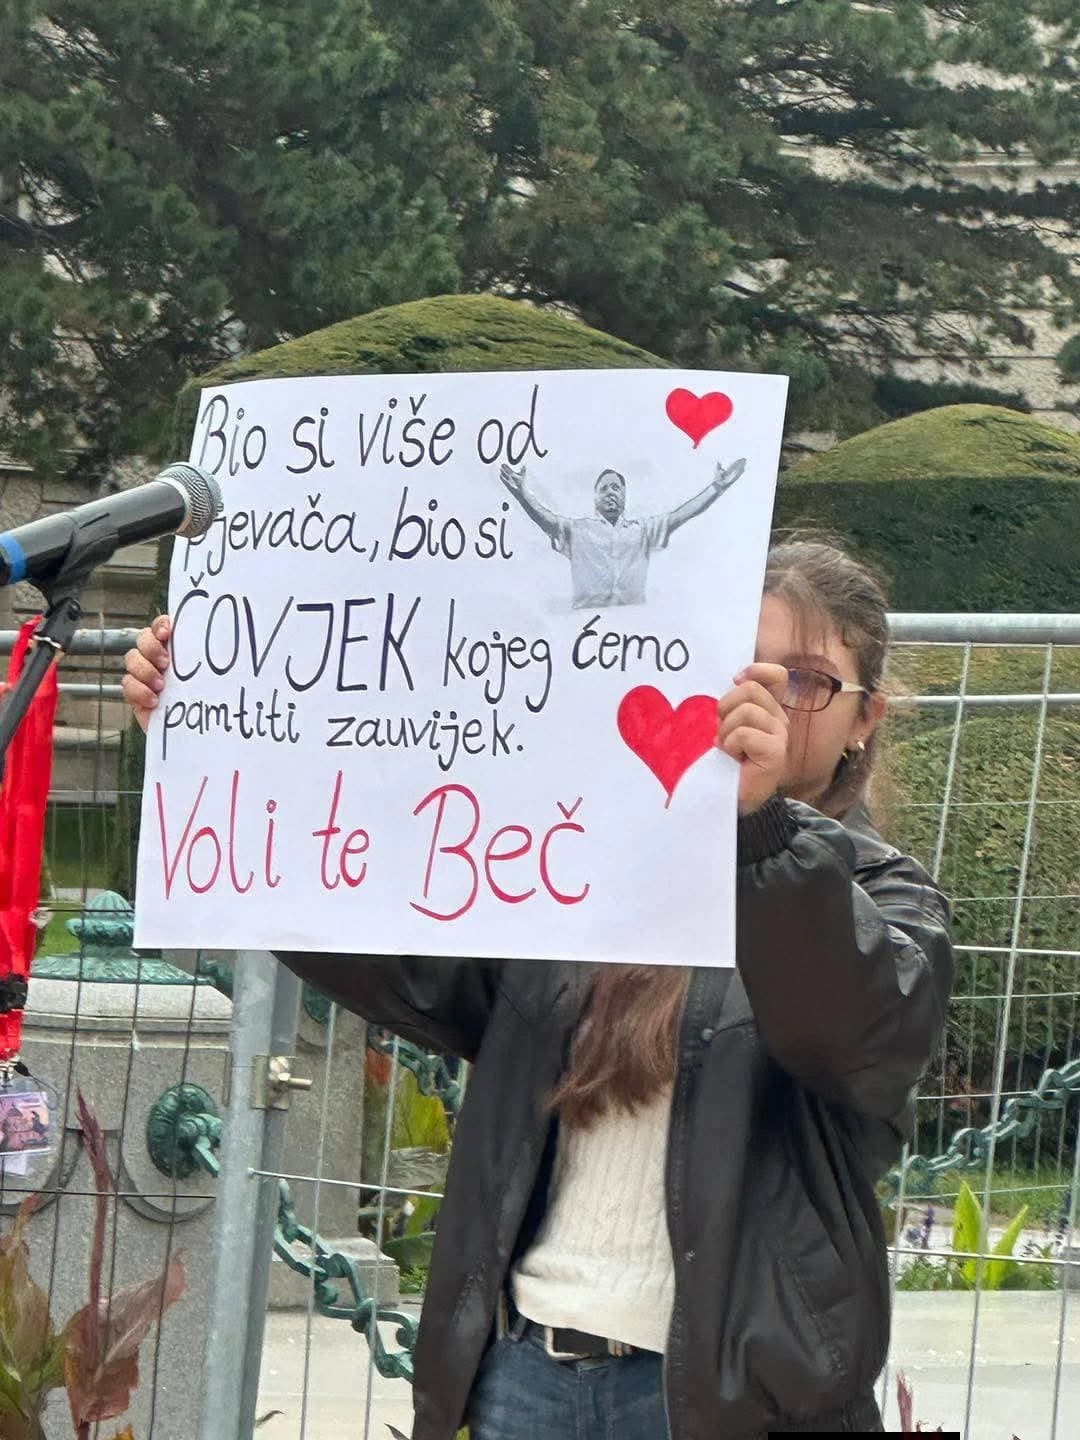 Bio si više od
pjevača, bio si
ČOVJEK kojeg ćemo
pamtiti zauvijek.
Voli te Beč